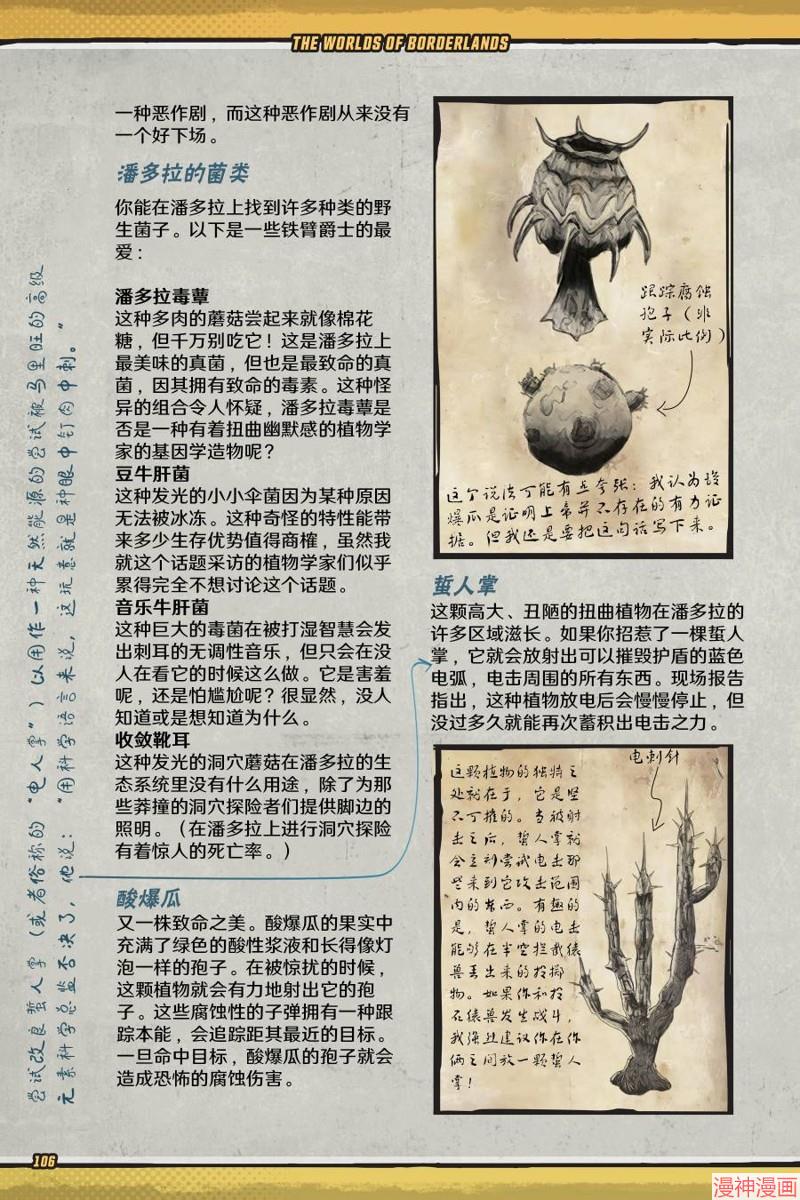 THE WORLDS OF BORDERLANDS
一种恶作剧，而这种恶作剧从来没有
一个好下场。
潘多拉的菌类
你能在潘多拉上找到许多种类的野
生菌子。以下是一些铁臂爵士的最
爱：
潘多拉毒蕈
这种多肉的蘑菇尝起来就像棉花
糖，但千万别吃它！这是潘多拉上
最美味的真菌，但也是最致命的真
菌，因其拥有致命的毒素。这种怪
异的组合令人怀疑，潘多拉毒蕈是
否是一种有着扭曲幽默感的植物学
家的基因学造物呢？
豆牛肝菌
这种发光的小小伞菌因为某种原因
无法被冰冻。这种奇怪的特性能带
来多少生存优势值得商榷，虽然我
就这个话题采访的植物学家们似乎
累得完全不想讨论这个话题。
音乐牛肝菌
这种巨大的毒菌在被打湿智慧会发
出刺耳的无调性音乐，但只会在没
人在看它的时候这么做。它是害羞
呢，还是怕尴尬呢？很显然，没人
知道或是想知道为什么。
收敛靴耳
这种发光的洞穴蘑菇在潘多拉的生
态系统里没有什么用途，除了为那
些莽撞的洞穴探险者们提供脚边的
照明。（在潘多拉上进行洞穴探险
有着惊人的死亡率。）
酸爆瓜
又一株致命之美。酸爆瓜的果实中
充满了绿色的酸性浆液和长得像灯
泡一样的孢子。在被惊扰的时候，
这颗植物就会有力地射出它的孢
子。这些腐蚀性的子弹拥有一种跟
踪本能，会追踪距其最近的目标。
一旦命中目标，酸爆瓜的孢子就会
造成恐怖的腐蚀伤害。
跟踪腐蚀
孢子（非
实际比例）
这个说法可能有点夸张：我认为酸
爆瓜是证明上帝并不存在的有力证
据。但我还是要把这句话写下来。
蜇人掌
这颗高大、丑陋的扭曲植物在潘多拉的
许多区域滋长。如果你招惹了一棵蜇人
掌，它就会放射出可以摧毁护盾的蓝色
电弧，电击周围的所有东西。现场报告
指出，这种植物放电后会慢慢停止，但
没过多久就能再次蓄积出电击之力。
电刺针
这颗植物的独特之
处就在于，它是坚
不可摧的。当被射
击之后，蜇人掌就
会立刻尝试电击那
些来到它攻击范围
内的东西。有趣的
是，蜇人掌的电击
能够在半空拦截猿
兽丢出来的投掷
物。如果你和投
石猿兽发生战斗，
我强烈建议你在你
俩之间放一颗蜇人
掌！
尝试改良蜇人掌（或者俗称的“电人掌”）以用作一种天然能源的尝试被马里旺的高级
元素科学总监否决了，他说：“用科学语言来说，这玩意就是种眼中钉肉中刺。”
106
漫神漫画